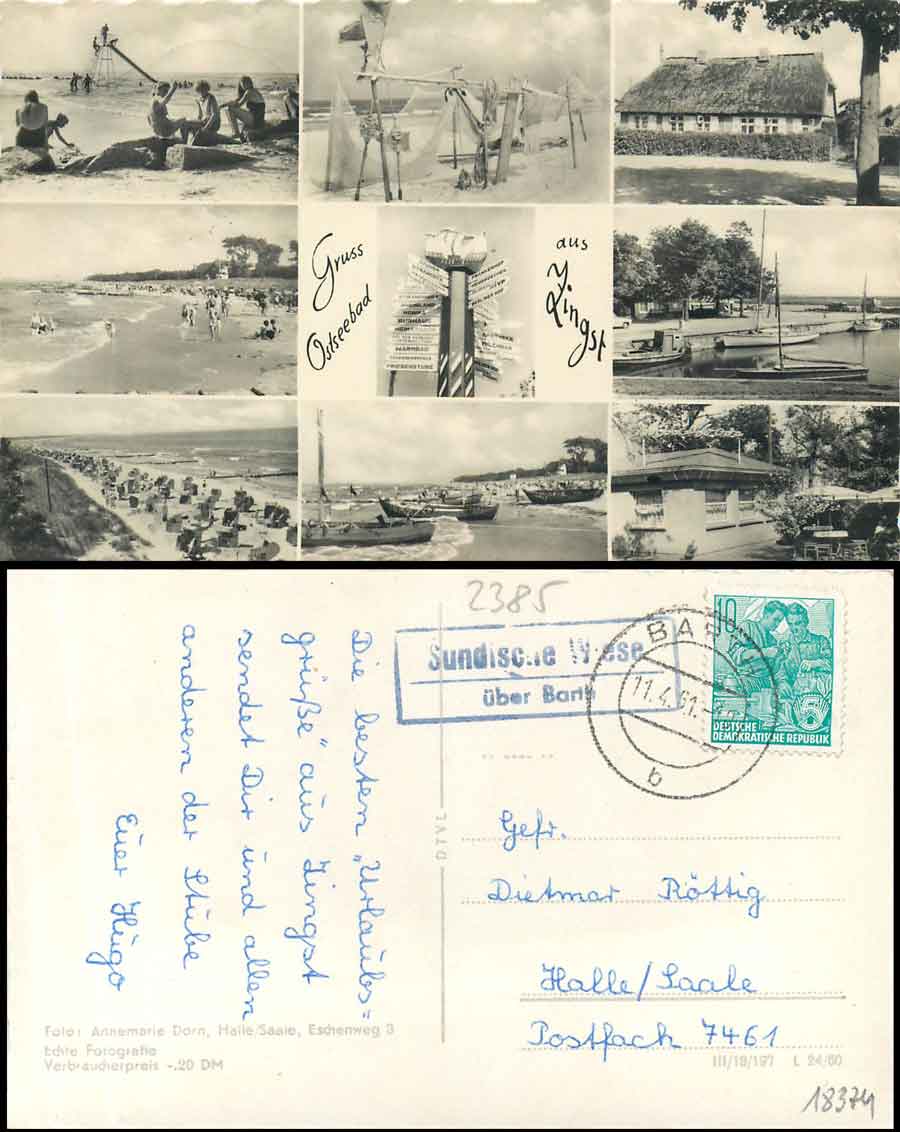 Gruss
aus
Ostseebad
Zingst
WARMBAD
FRIESENSTUBE
2385
Sundische Wiese
über Barth
BARTH
11.4.61
b
10
5
DEUTSCHE
DEMOKRATISCHE REPUBLIK
Die besten „Urlaubs=
grüße“ aus Zingst
sendet Dir und allen
anderen der Stube
Euer Hugo
Gefr.
Dietmar Röttig
Halle/Saale
Postfach 7461
Foto: Annemarie Dorn, Halle/Saale, Eschenweg 3
Echte Fotografie
Verbraucherpreis -.20 DM
III/18/197 L 24/60
18374